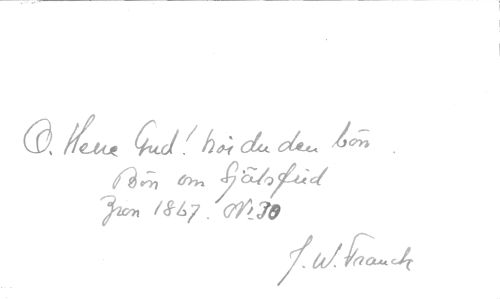 O. Herre Gud! hör du den bön.
Bön om Själsfrid
Zion 1867. No 30
J. W. Franck